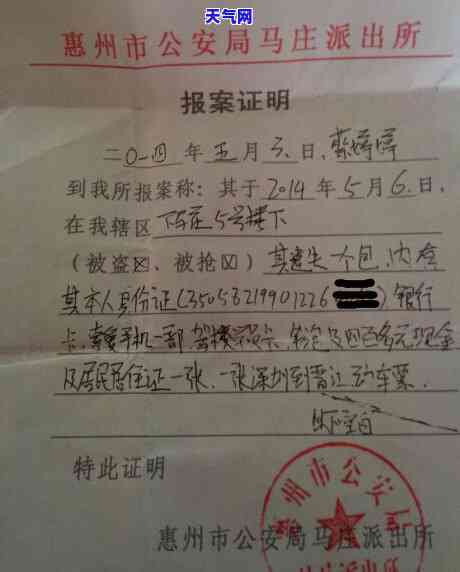 天气网
惠州市公安局马庄派出所
报案证明
二0一四年五月三日,蔡婷婷
到我所报案称:其于2014年5月6日,
在我辖区下马庄5号楼下
(被盗☒、被抢☒)其遗失一个包,内含
其本人身份证(35058219901226)银行
卡,手机一部,现金
及居民居住证一张、一张深圳到晋江动车票。
以下空白
特此证明
惠州市公安局马庄派出所
惠州市公安局
马庄派出所